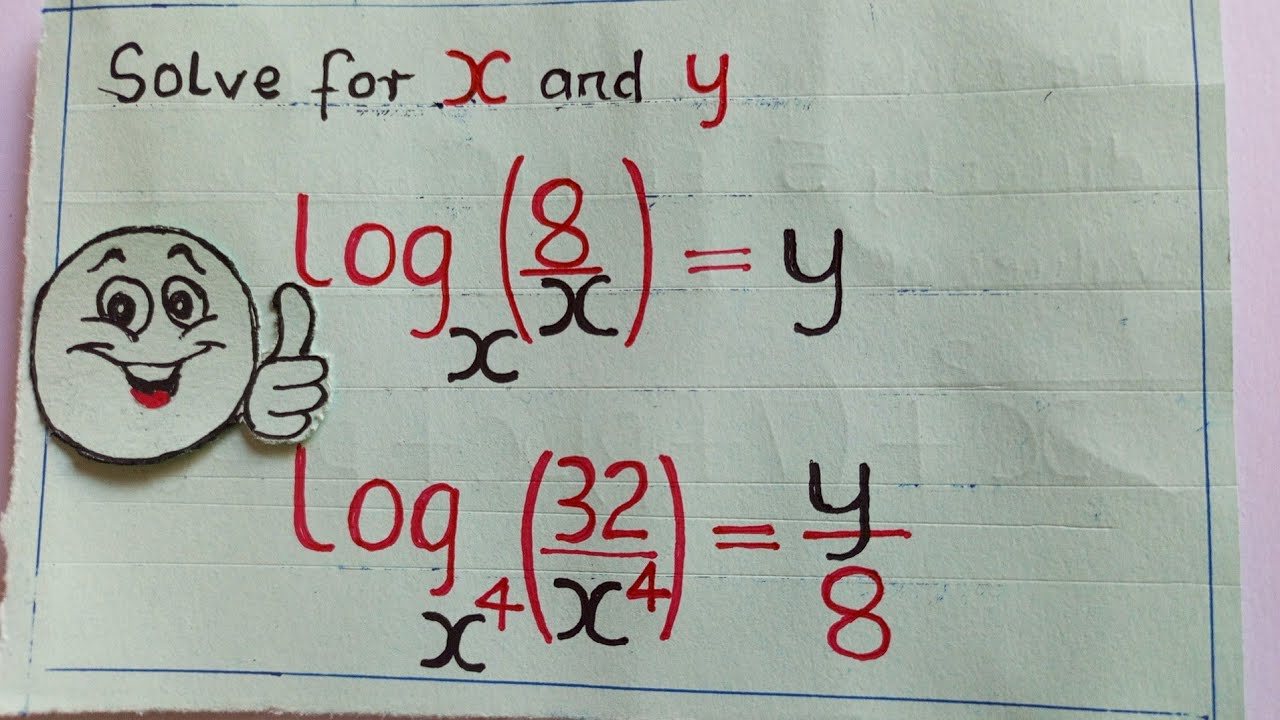 Solve for x and y
log_x(8/x) = y
log_{x^4}(32/x^4) = y/8